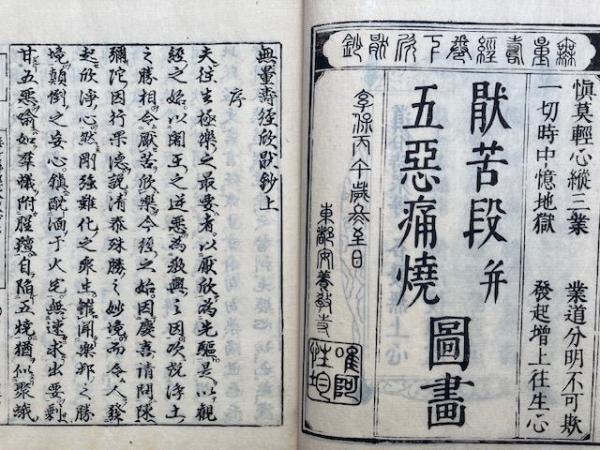 無量壽經卷下欣猒鈔
慎莫輕心縱三業 業道分明不可欺
一切時中憶地獄 發起增上往生心
猒苦段并
五惡痛燒圖畫
享保丙午歲冬至日
東都安養教寺
無量壽經欣猒鈔上
序
夫往生極樂之最要者以厭欣為先驅是以觀
經之始以闍王之逆惡為發興之因次說淨土
之勝相令厭苦欣樂今經之始因慶喜請問陳
彌陀因行果德說清泰殊勝之妙境而令人發
起欣淨心然剛強難化之衆生雖聞樂邦之勝
境顛倒之妄心鎮耽湎于火宅無速求出要剩
甘五惡喻如羣蟻附腥羶自陷五燒猶似聚蛾